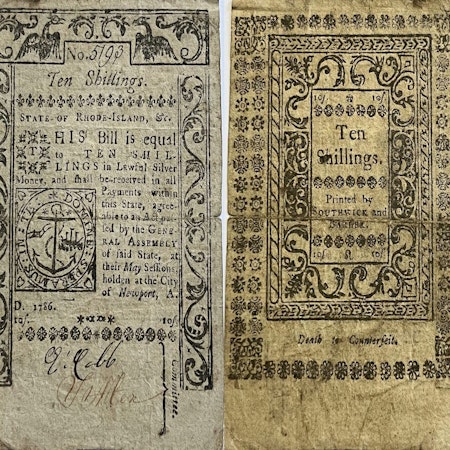 No. 5193
Ten Shillings.
STATE OF RHODE-ISLAND, &c.
THIS Bill is equal
to TEN SHIL-
LINGS in Lawful Silver
Money, and shall be received in all
Payments within
this State, agree-
able to an Act pas-
sed by the GENE-
RAL ASSEMBLY
of said State, at
their May Session,
holden at the City
of Newport, A.
D. 1786.
10/- 10/-
Committee.
10/ 10/
Ten
Shillings.
Printed by
SOUTHWICK and
BARBER.
10/ 10/
Death to Counterfeit.